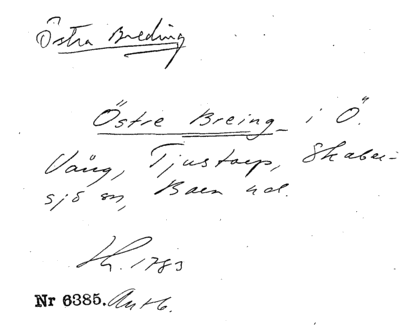 Östra Breding
Östre Breing i Ö.
Vång, Tjustorp, Skaber-
sjö sn, Bara hd.
1783
Nr 6385. Antb.